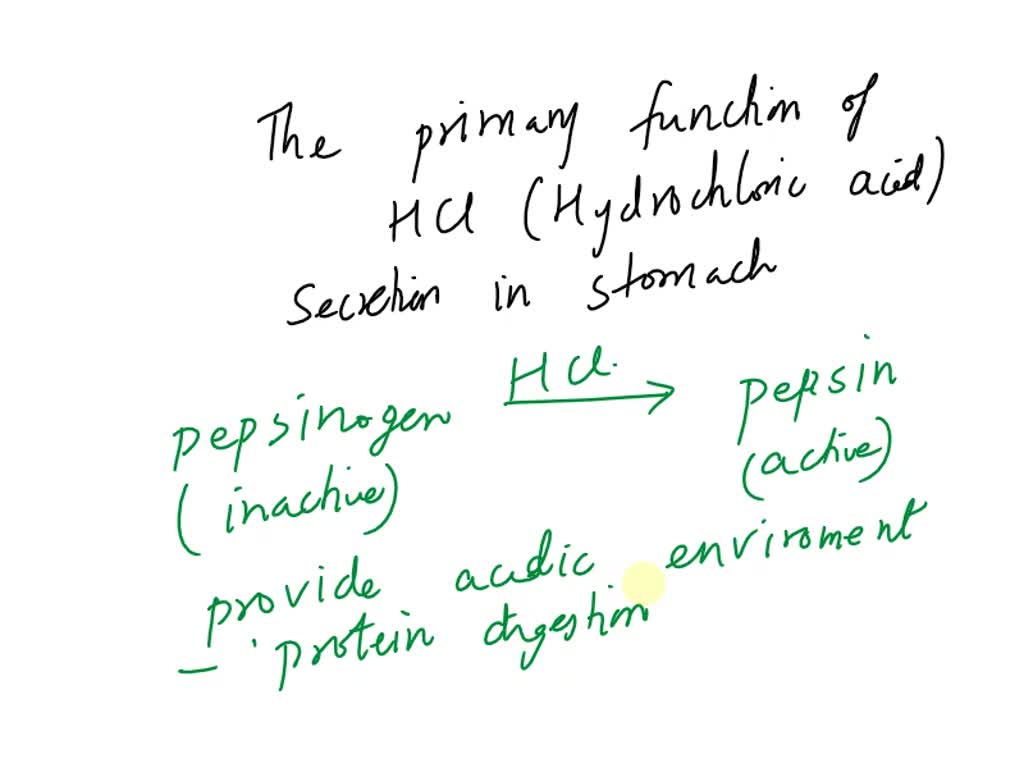 The primary function of
HCl (Hydrochloric acid)
secretion in stomach
pepsinogen HCl. → pepsin
(inactive) (active)
provide acidic enviroment
- protein digestion